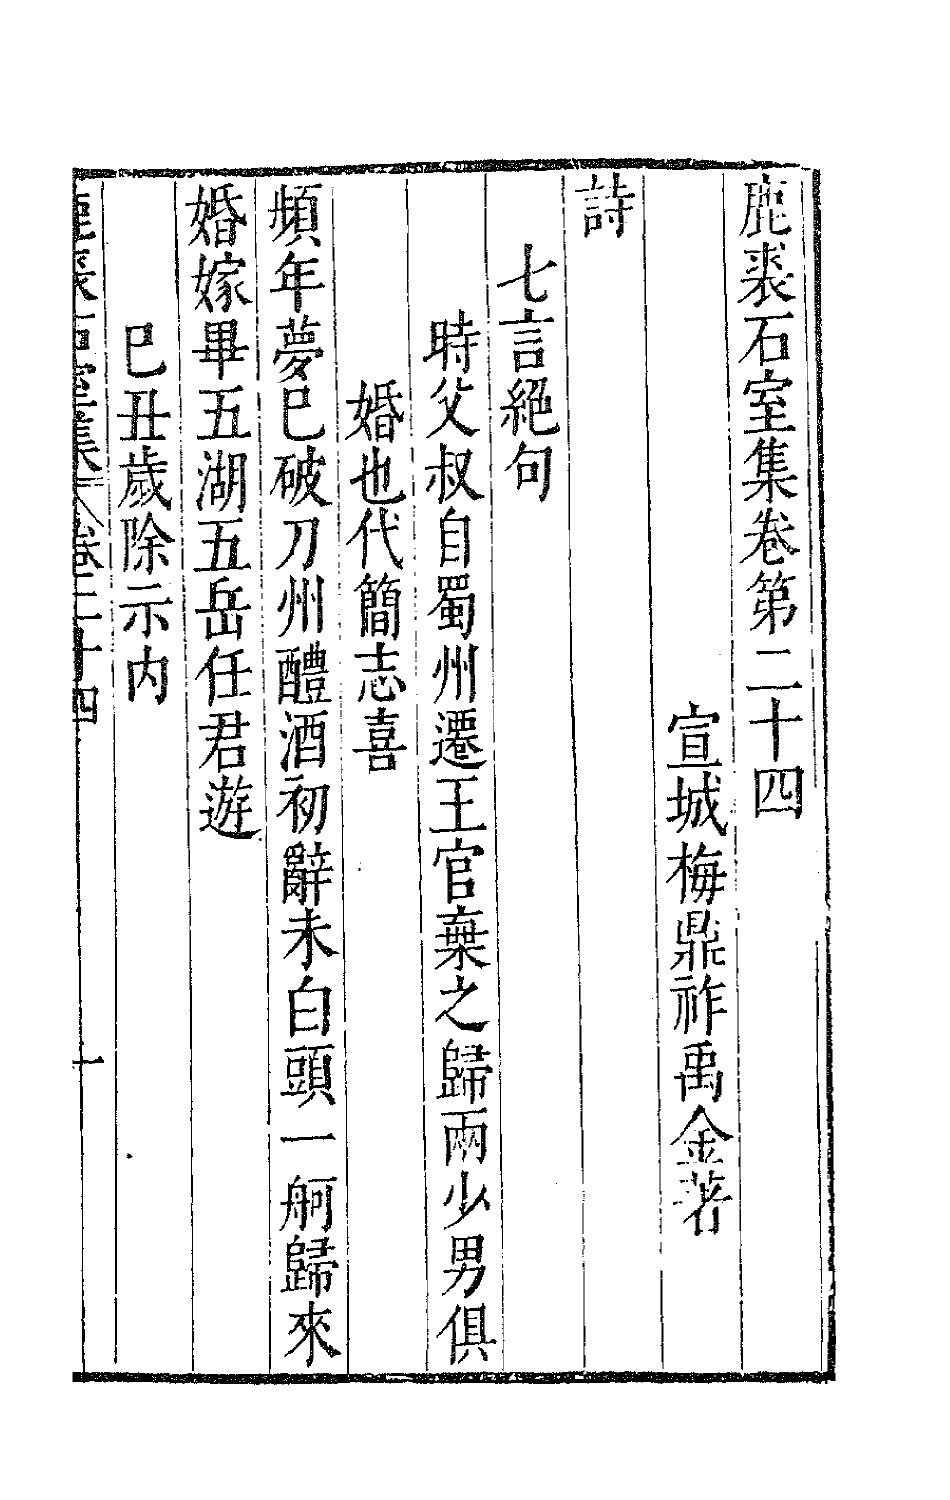 鹿裘石室集卷第二十四
宣城梅鼎祚禹金著
詩
七言絕句
時父叔自蜀州遷王官棄之歸兩少男俱
婚也代簡志喜
頻年夢已破刀州醴酒初辭未白頭一舸歸來
婚嫁畢五湖五岳任君遊
已丑歲除示內
鹿裘石室集 卷二十四 一